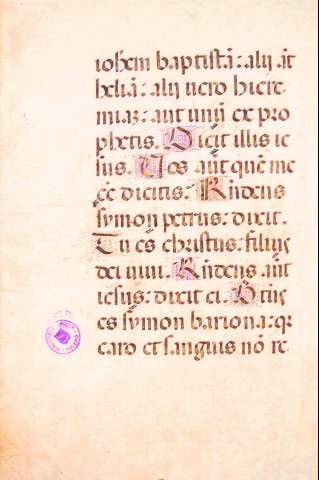 iohem baptistā: alij āt
heliā: alij uero hiere
miaz: aut unū ex pro
phetis. Dicit illis ie
sus. Vos aūt quē me
eē dicitis: Rñdens
symon petrus: dixit.
Tu es christus: filius
dei uiui. Rñdens aūt
iesus: dixit ei. Btus
es symon bariona: qz
caro et sanguis nō re